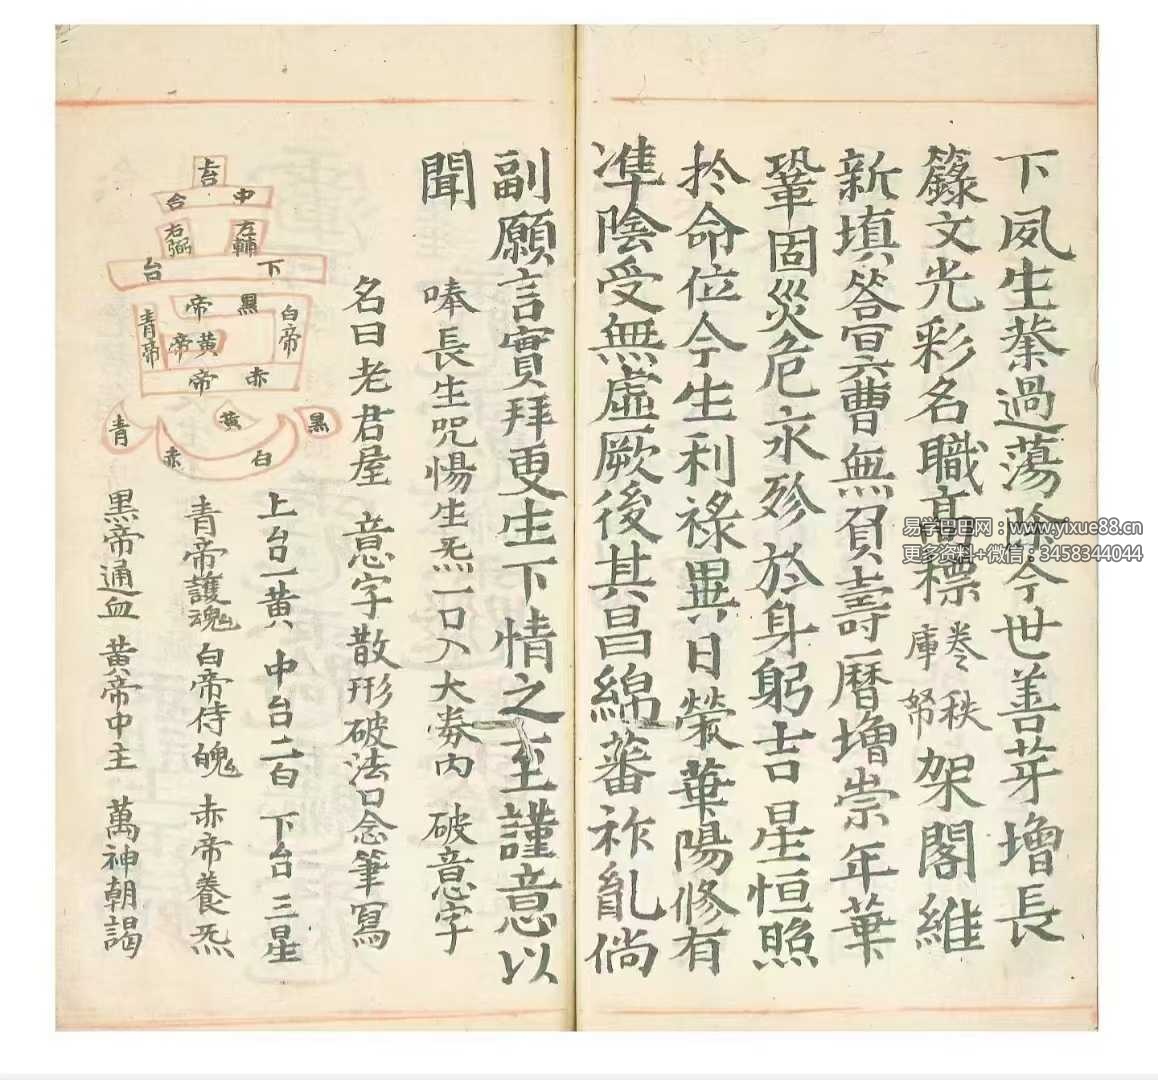 下夙生𠎝過蕩除今世善芽增長
籙文光彩名職高標卷秩庫帑架閣維
新填答宣六曹無負壽曆增崇年華
鞏固災危永殄於身躬吉星恒照
扵命位今生利祿異日榮華陽修有
準陰受無虛厥後其昌綿蕃祚胤倘
副願言實拜更生下情之至謹意以
聞
唪長生咒惕生炁一口入大劵內 破意字
名曰老君屋 意字散形破法口念筆寫
上台一黃 中台二白 下台三星
青帝護魂 白帝侍魄 赤帝養炁
黑帝通血 黃帝中主 萬神朝謁
上台
中台
左輔
右弼
下台
黑帝
白帝
黃帝
青帝
赤帝
黑
黃
青
白
赤
易学巴巴网：www.yixue88.cn
更多资料+微信：3458344044